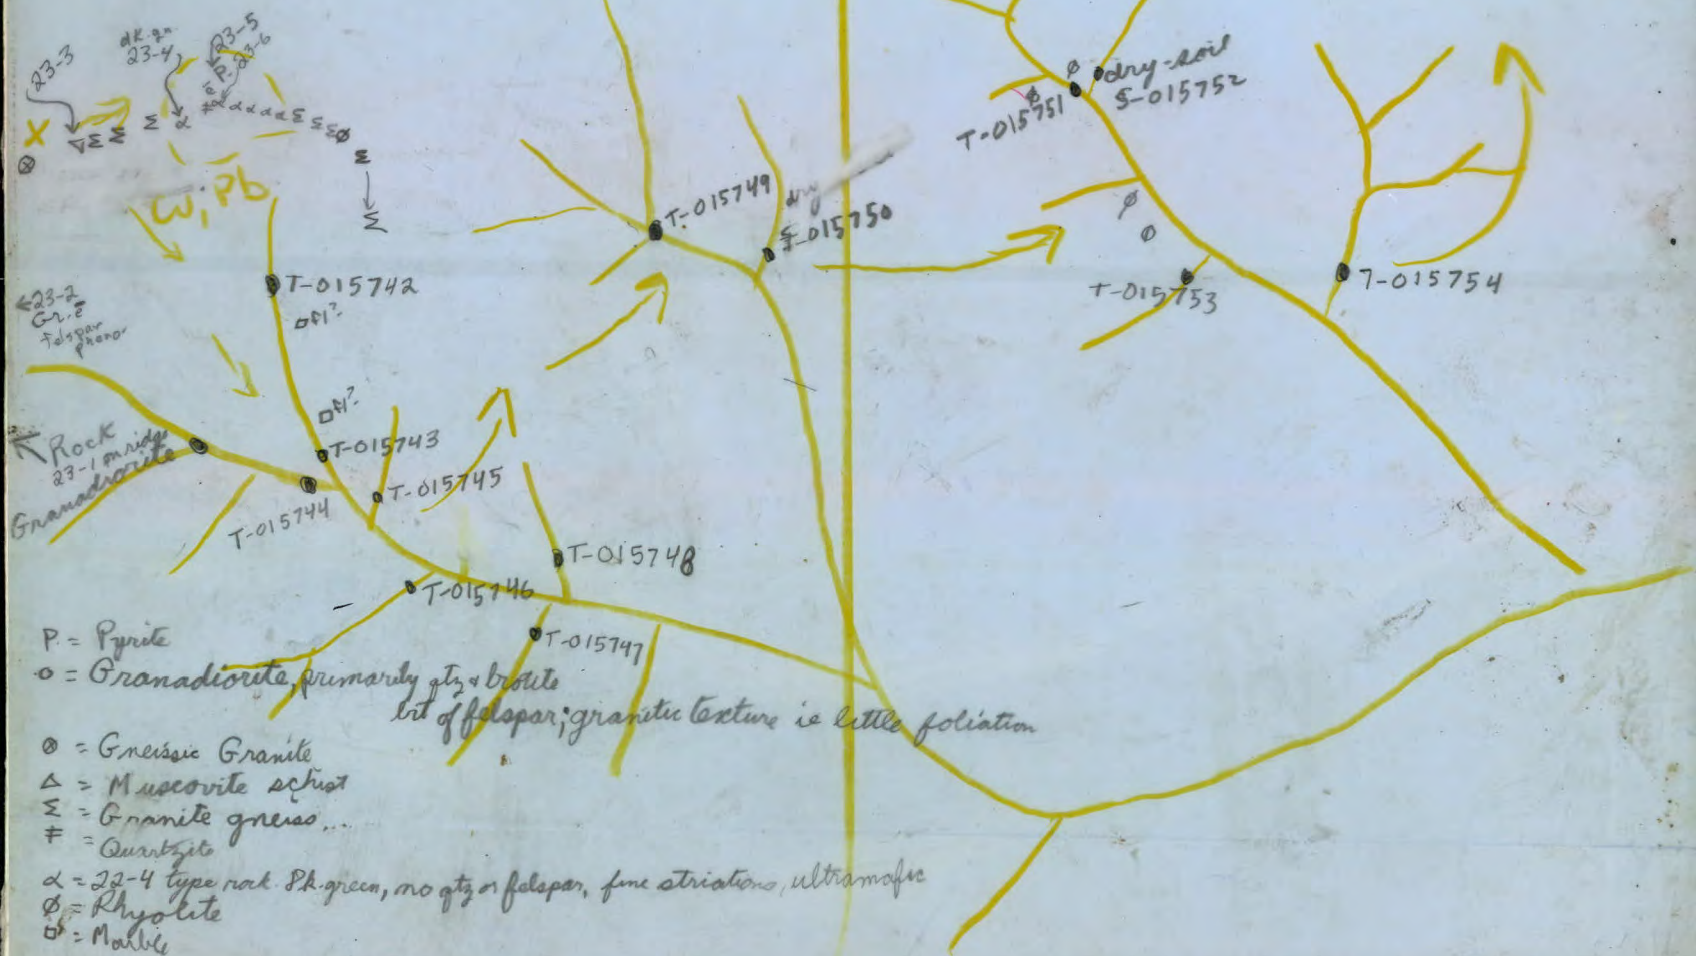 23-3
dk.gn
23-4
23-5
23-6
P.
X
Σ Σ Σ α
α α α α α Σ Σ Σ Ø
Σ
Σ
W, Pb
T-015742
fl?
←23-2
Gr. c̄
felspar
phenos
fl?
Rock
23-1 on ridge
Granadiorite
T-015743
T-015745
T-015744
T-015746
T-015748
T-015747
T-015749
dry
S-015750
dry-soil
S-015752
T-015751
Ø
Ø
Ø
Ø
T-015753
T-015754
P. = Pyrite
o = Granadiorite, primarily qtz & biotite
bit of felspar; granitic texture ie little foliation
⊗ = Gneissic Granite
Δ = Muscovite schist
Σ = Granite gneiss...
‡ = Quartzite
α = 22-4 type rock. dk. green, no qtz or felspar, fine striations, ultramafic
Ø = Rhyolite
□ = Marble